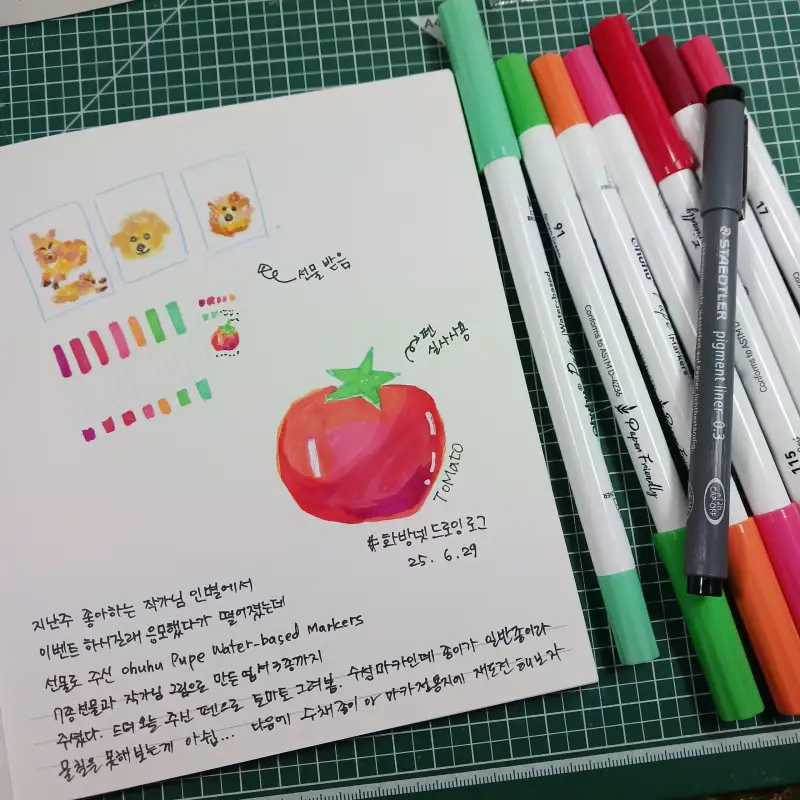 A4
선물 받음
펜
실사사용
TOMATO
#화방넷드로잉로그
25. 6. 29
지난주 좋아하는 작가님 인별에서
이벤트 하시길래 응모했다가 떨어졌는데
선물로 주신 ohuhu Pupe Water-based Markers
7종선물과 작가님 그림으로 만든 엽서 3종까지
주셨다. 드뎌 오늘 주신 펜으로 토마토 그려봄. 수성마카인데 종이가 일반종이라
물칠을 못해보는게 아쉽... 다음에 수채종이 아 마카전용지에 재도전 해보자
91
Conforms to ASTM D-4236
Paper Friendly
Ohuhu
Markers
Friendly
STAEDTLER
pigment liner 0.3
CAP-OFF
17
Conforms to ASTM D
115